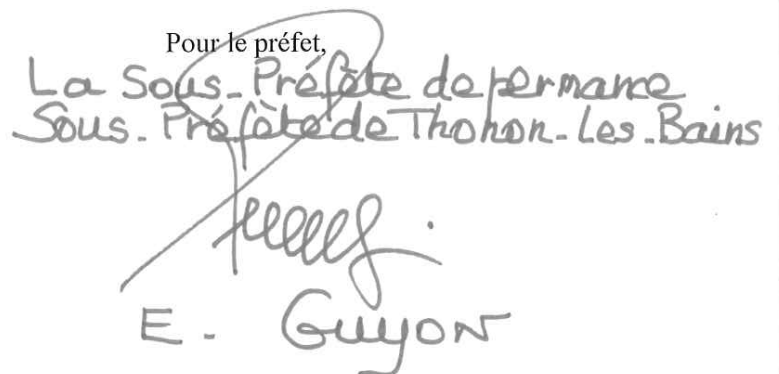 Pour le préfet,
La Sous-Préfète de permanence
Sous-Préfète de Thonon-Les-Bains
E. Guyon